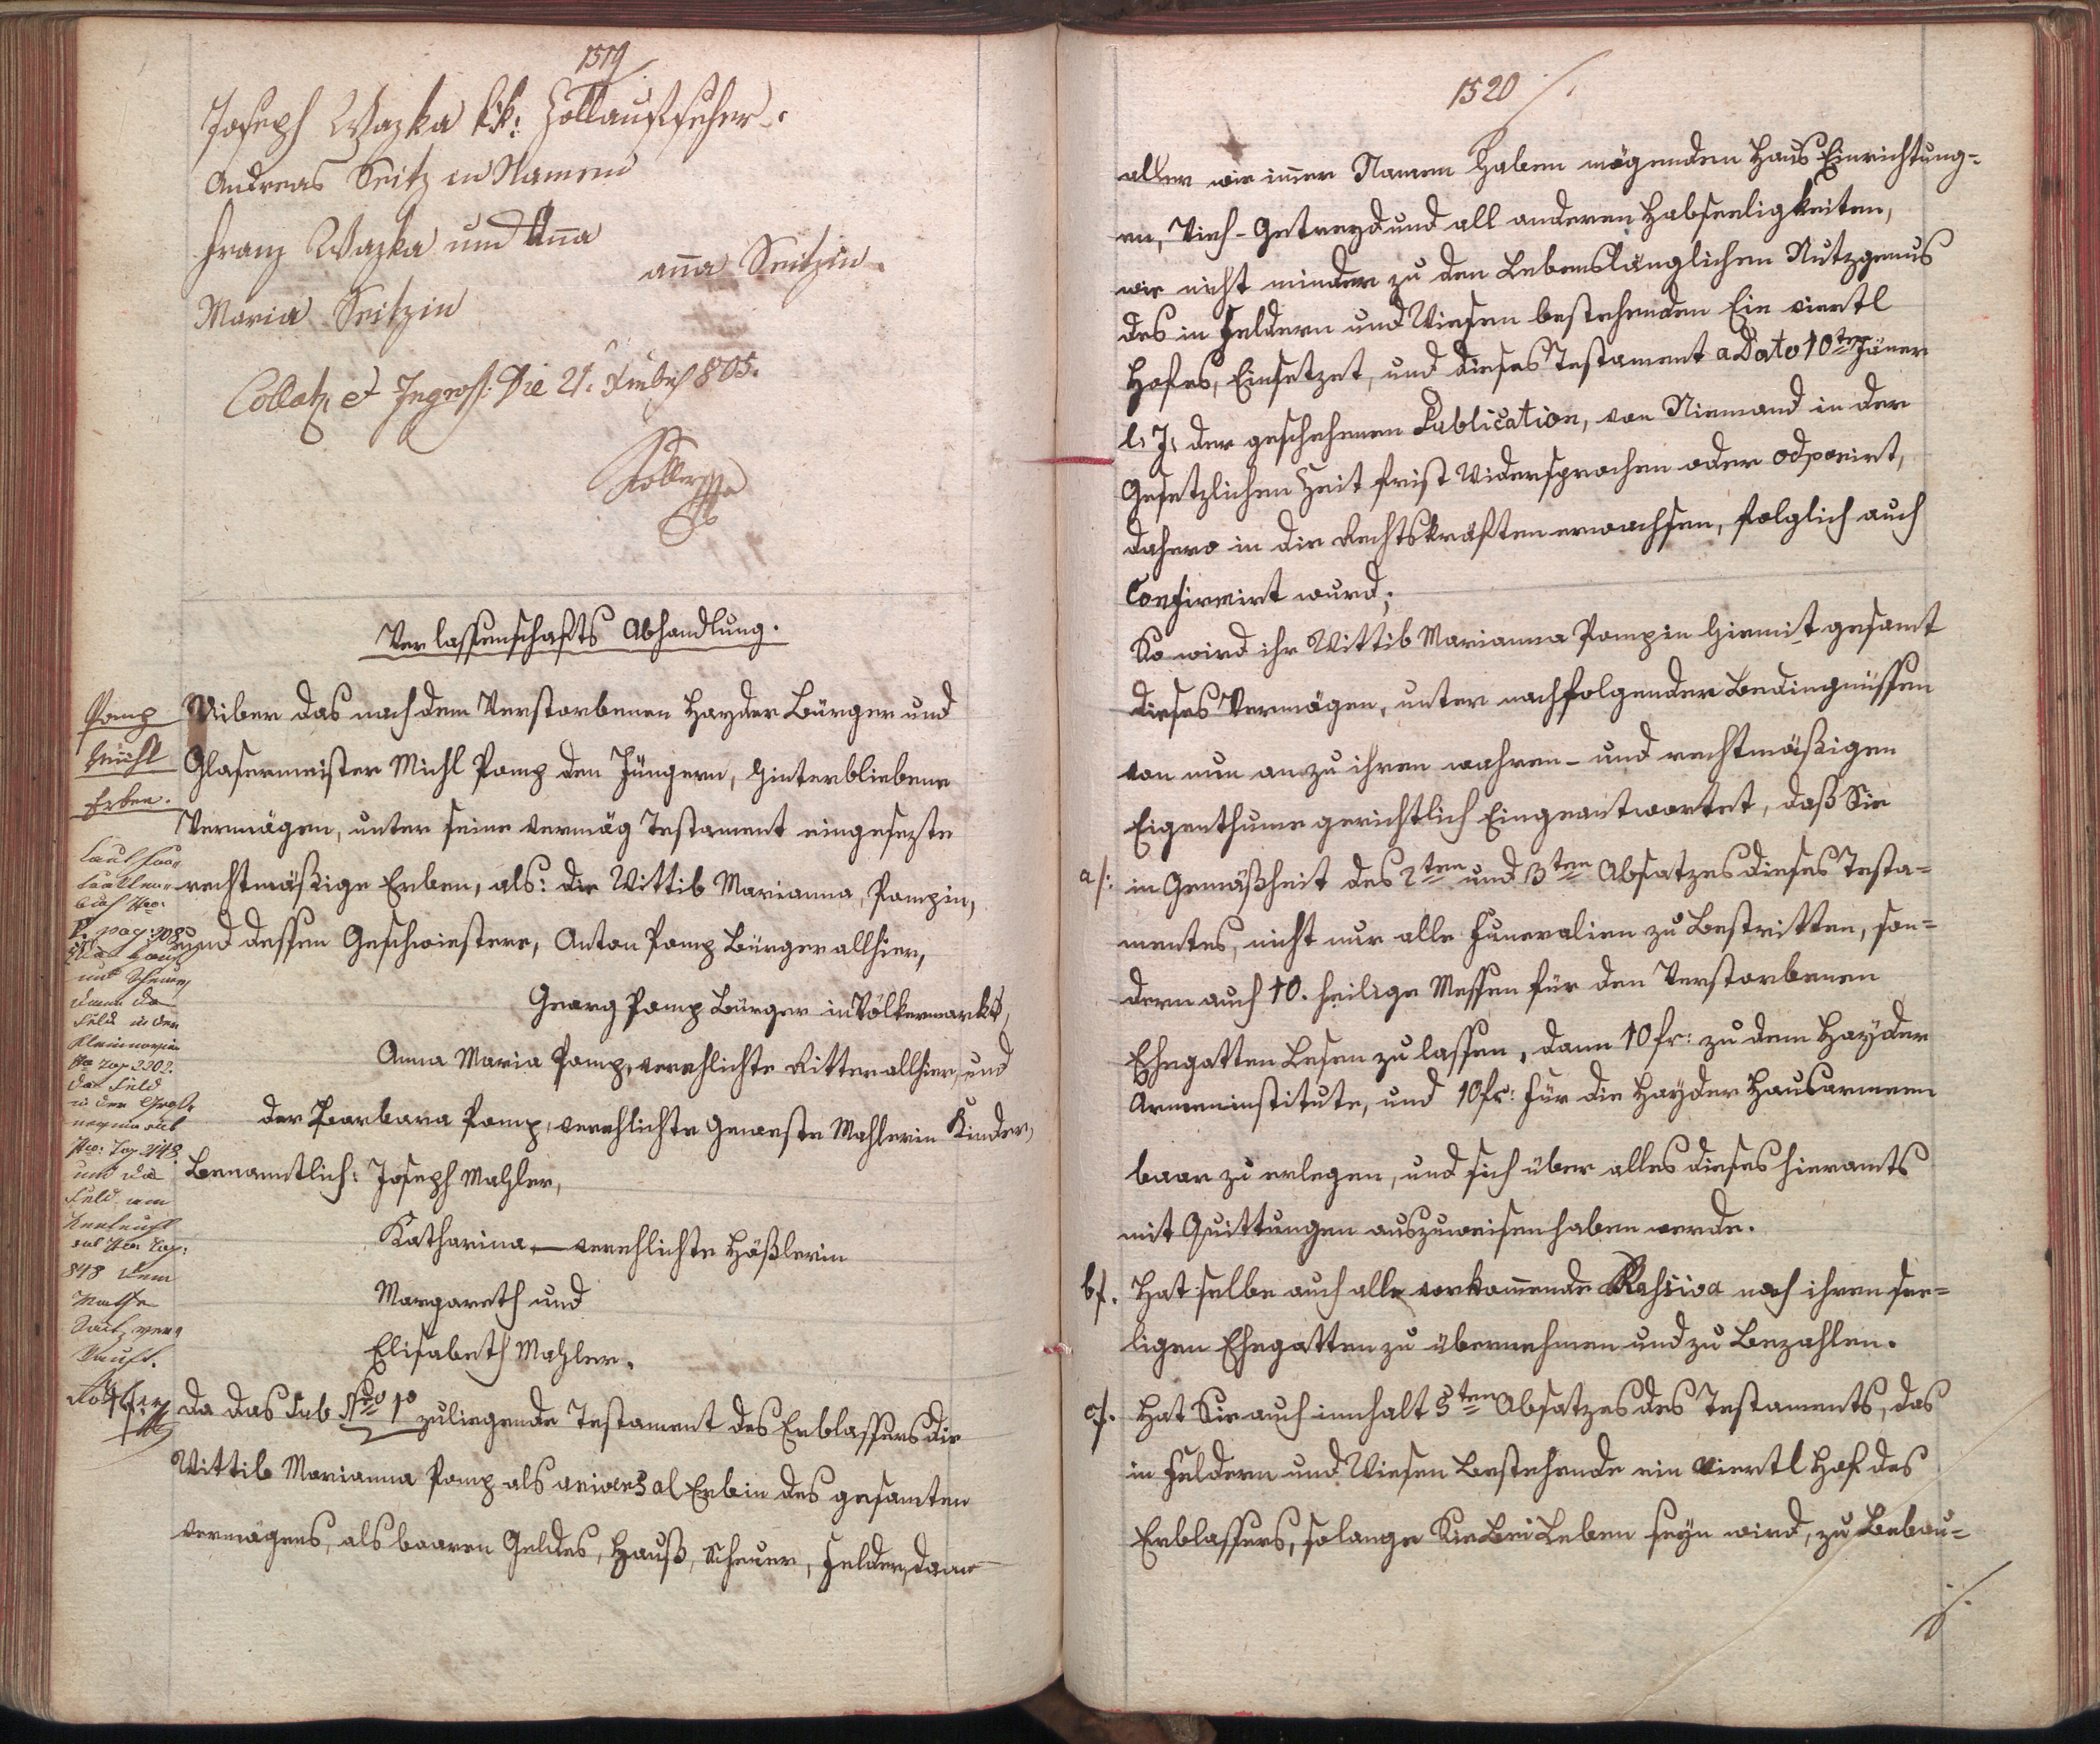 1519
Joseph Wazka kk: Zollaufseher.
Andreas Seitz in Namen
Franz Wazka und Anna
Anna Seitzin.
Maria Seitzin
Collat, et Ingross: Die 21. 805.
Verlassenschafts Abhandlung.
Pomp
Michl
Erben.
Uiber das nach dem Verstorbenen Hayder Bürger und
Glasermeister Michl Pomp den Jüngern, hinterbliebene
Vermögen, unter seine vermög Testament eingesezte
rechtmäßige Erben, als: die Wittib Marianna, Pompin,
und dessen Geschwiestere, Anton Pomp Bürger allhier,
Georg Pomp Bürger in Völkermarkt,
Anna Maria Pomp, verehlichte Ritter allhier, und
der Barbara Pomp, verehlichte Geweste Mahlerin Kinder,
Benanntlich: Joseph Mahler,
Katharina – verehlichte Hößlerin
Margareth und
Elisabeth Mahler.
Da das sub Nro 1o zuliegende Testament des Erblassers die
Wittib Marianna Pomp als universal Erbin des gesamten
vermögens, als baaren Geldes, Hauß, Scheuer, Felder, dann
und Scheuer,
dann das
Feld in der
das Feld
in der Groß-
und das
Feld am
848 dem
verkauft.
1520
aller wie immer Namen haben mögenden Haus Einrichtung-
en, Vieh- Getreyd und all anderen Habseeligkeiten,
wie nicht minder zu den Lebenslänglichen Nutzgenus
des in Feldern und Wiesen bestehenden Ein viertl
Hofes, Einsetzet, und dieses Testament a Dato 10ten Jäner
l: J: der geschehenen Publication, von Niemand in der
Gesetzlichen Zeit frist Widersprochen oder
dahero in die Rechtskräften erwachsen, folglich auch
Confirmirt wurd;
So wird ihr Wittib Marianna Pompin hiemit gesamt
dieses Vermögen, unter nachfolgender Bedingnüssen
von nun an zu ihren wahren- und rechtmäßigen
Eigenthume gerichtlich Eingeantwortet, daß Sie
a/: in Gemäßheit des 2ten und 3ten Absatzes dieses Testa-
mentes, nicht nur alle Funeralien zu Bestritten, son-
dern auch 10. heilige Messen für den Verstorbenen
Ehegatten Lesen zu lassen, dann 10 fr: zu dem Hayder
Armeninstitute, und 10 fr: für die Hayder Hausarmen
baar zu erlegen, und sich über alles dieses hieramts
mit Quittungen auszuweisen haben werde.
b/. Hat selbe auch alle vorkommende Passiva nach ihren see-
ligen Ehegatten zu übernehmen und zu Bezahlen.
c/. Hat Sie auch innhalt 5ten Absatzes des Testaments, das
in Feldern und Wiesen Bestehende ein Viertl Hof des
Erblassers, solange Sie Bei Leben seyn wird, zu Bebau-